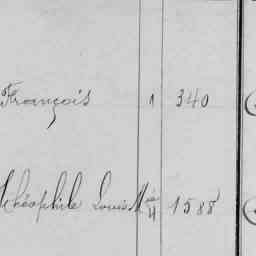 François 1 340
Théophile Louis M 1588